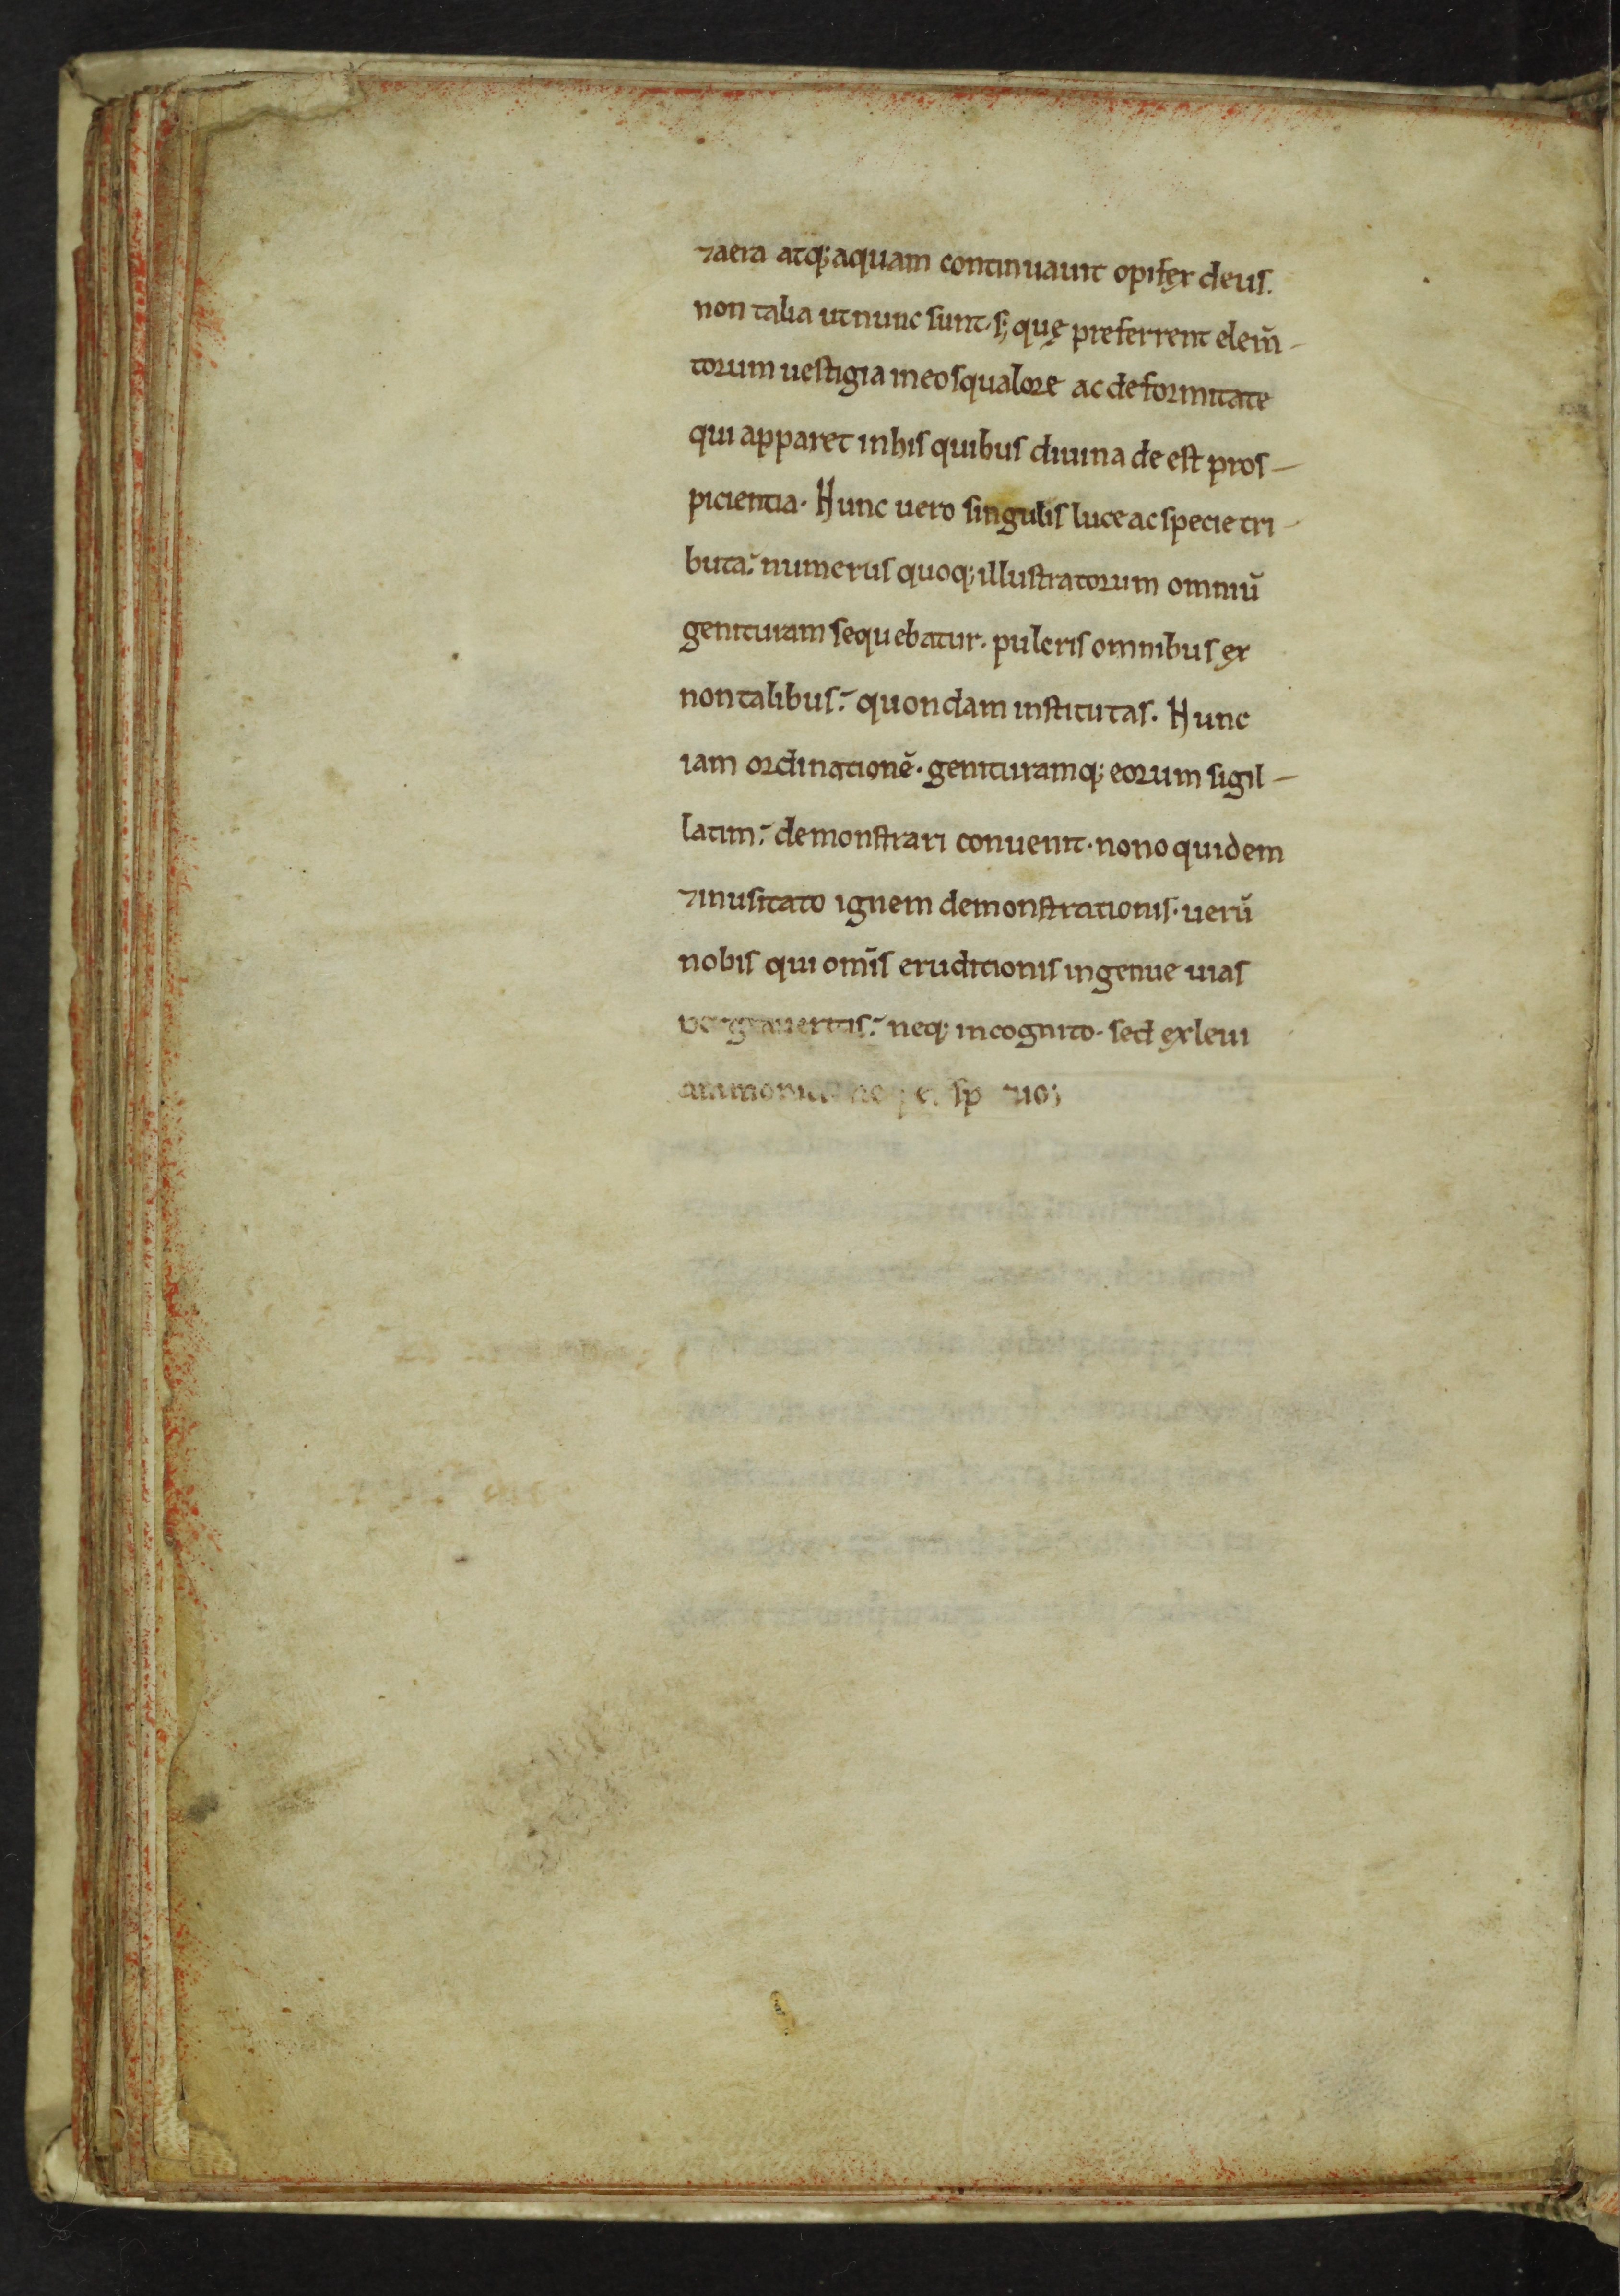 ⁊aera atq; aquam continuauit opifex deus.
non talia ut nunc sunt· s; quę preferrent elem̄-
torum uestigia in eo squalore ac deformitate
qui apparet in his quibus diuina de est pros-
picientia. Hunc uero singulis luce ac specie tri-
buta: numerus quoq; illustratorum omniū
genituram sequebatur. pulcris omnibus ex
non talibus: quondam institutas. Hunc
iam ordinationē. genituramq; eorum sigil-
latim: demonstrari conuenit. nono quidem
⁊inusitato ignem demonstrationis. uerū
nobis qui om̄is eruditionis ingenue uias
neq; incognito. sed ex leui